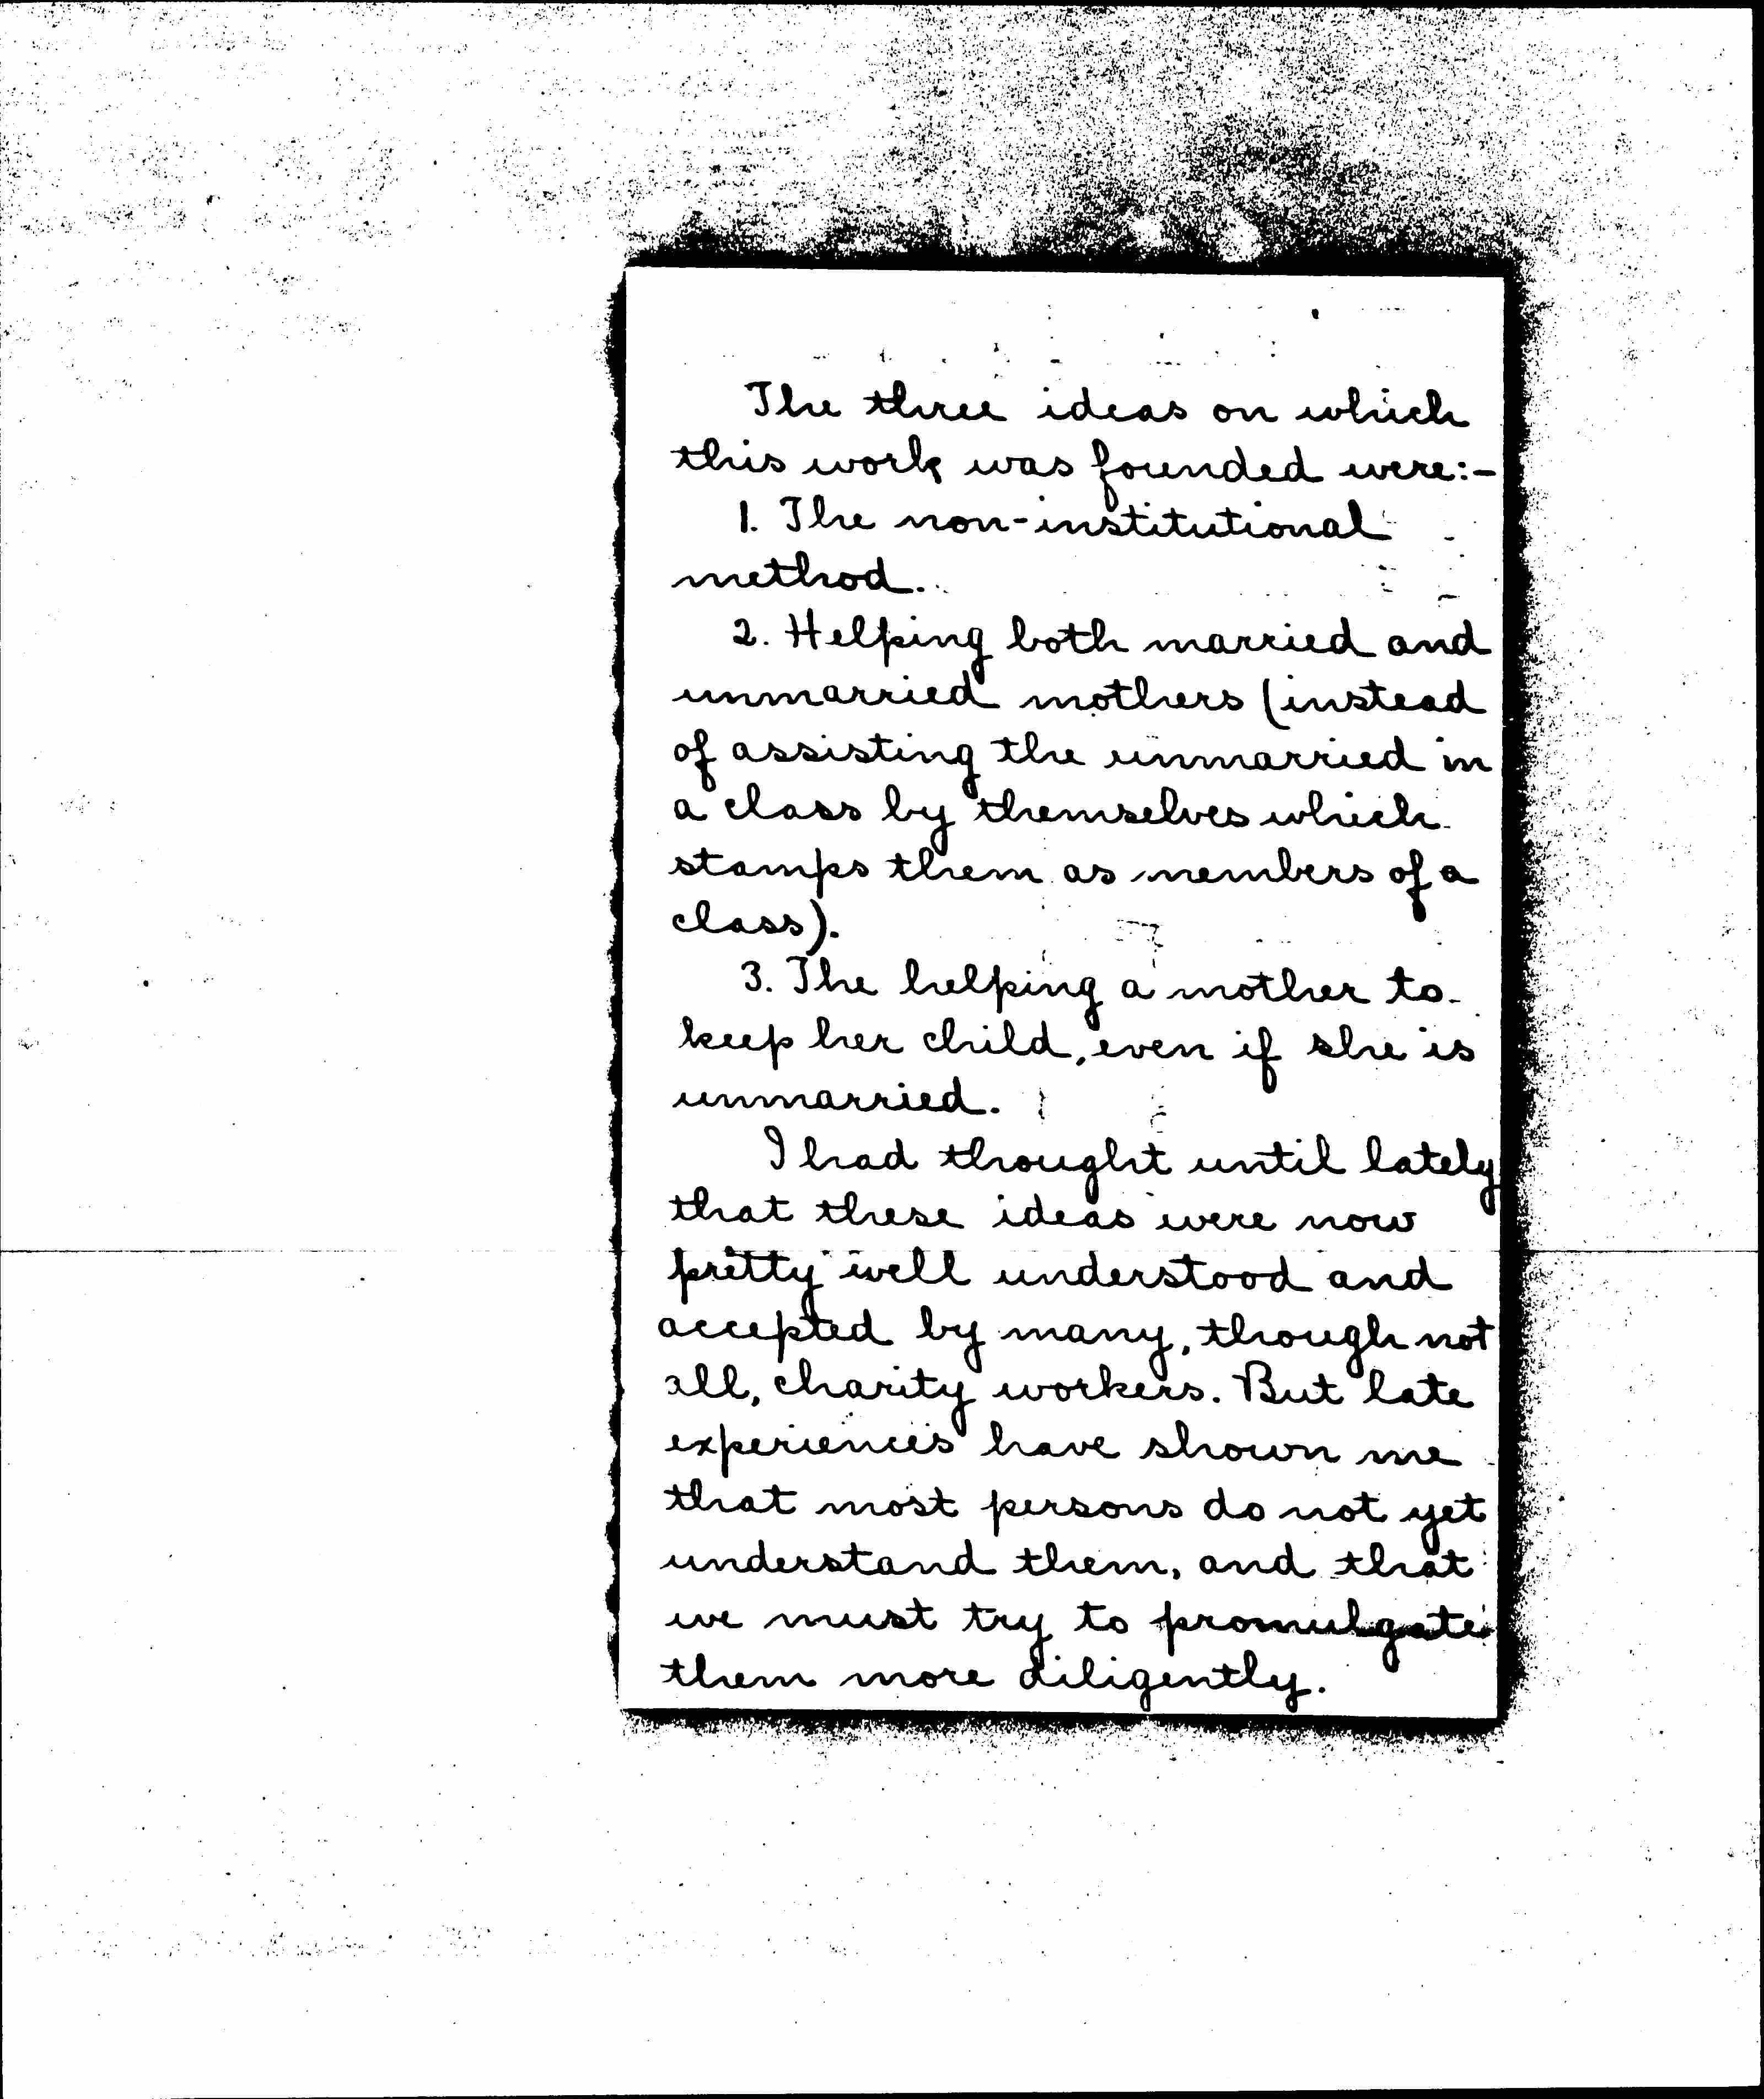 The three ideas on which
this work was founded were:-
1. The non-institutional
method.
2. Helping both married and
unmarried mothers (instead
of assisting the unmarried in
a class by themselves which
stamps them as members of a
class).
3. The helping a mother to
keep her child, even if she is
unmarried.
I had thought until lately
that these ideas were now
pretty well understood and
accepted by many, though not
all, charity workers. But late
experiences have shown me
that most persons do not yet
understand them, and that
we must try to promulgate
them more diligently.